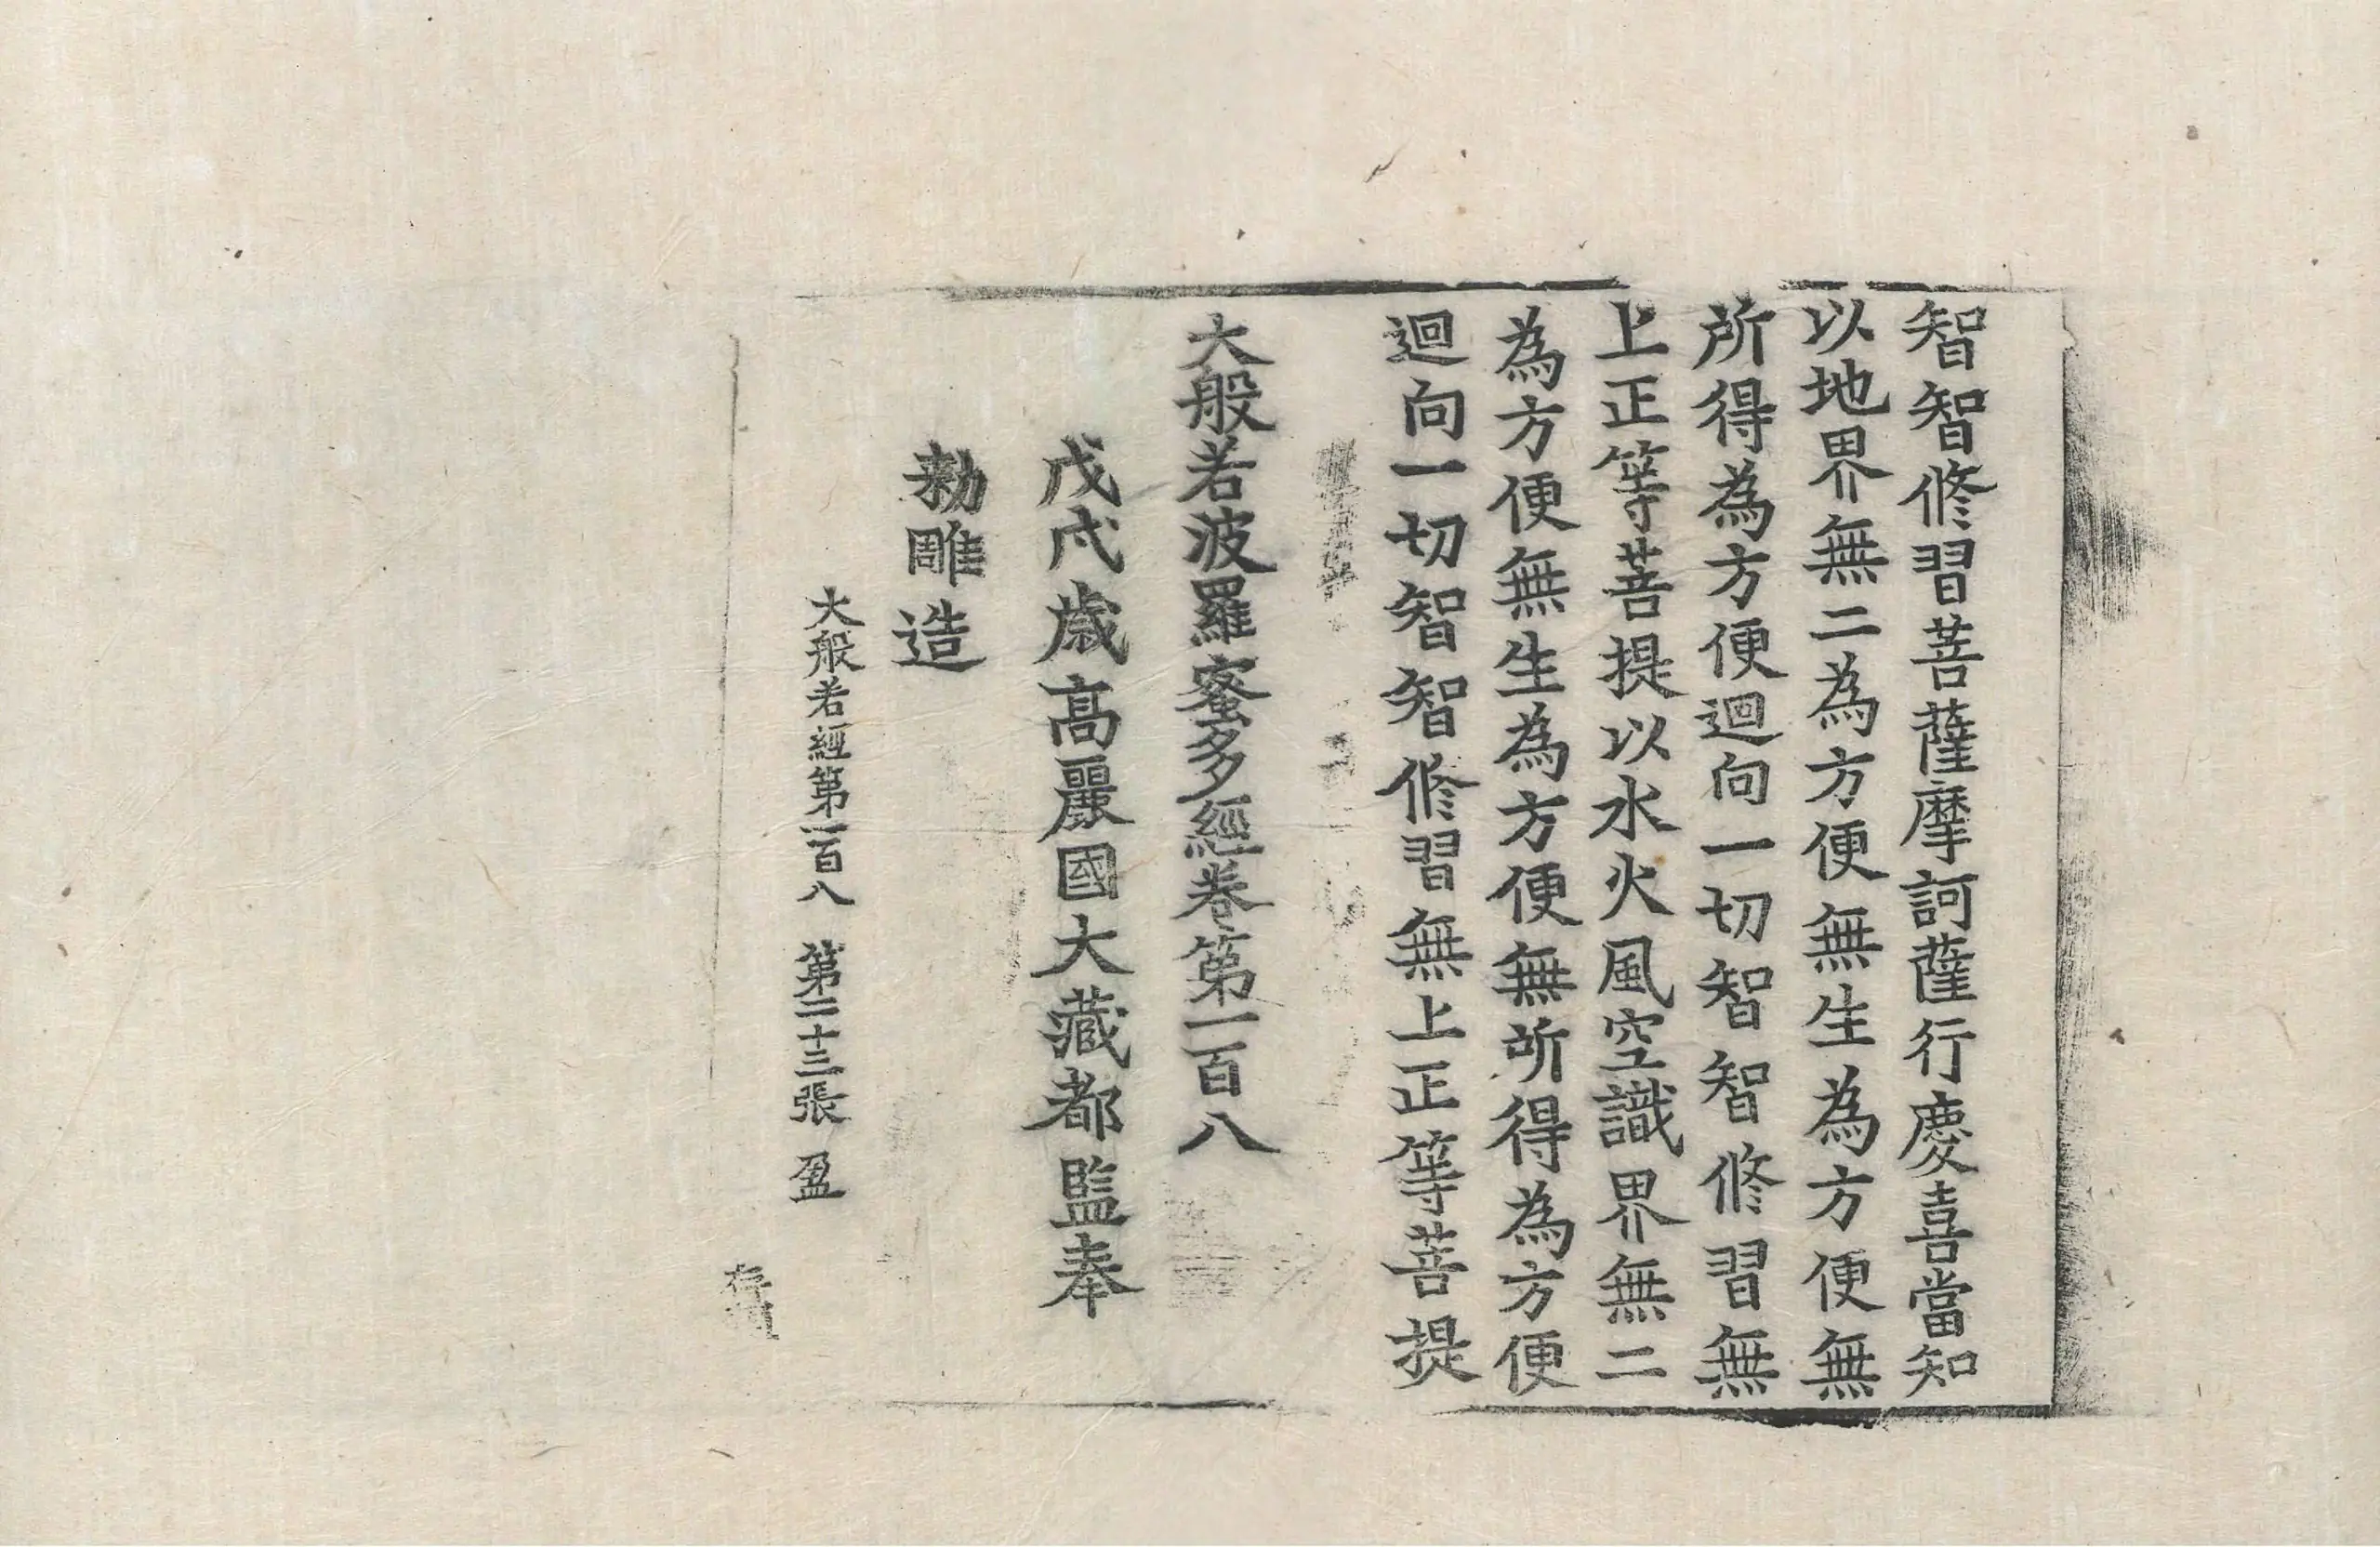 智智修習菩薩摩訶薩行慶喜當知
以地界無二為方便無生為方便無
所得為方便迴向一切智智修習無
上正等菩提以水火風空識界無二
為方便無生為方便無所得為方便
迴向一切智智修習無上正等菩提
大般若波羅蜜多經卷第一百八
戊戌歲高麗國大藏都監奉
勅雕造
大般若經第一百八 第二十三張 盈